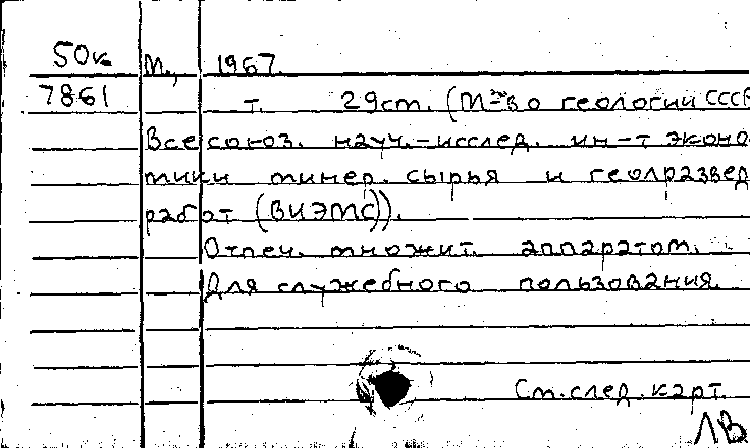 50к М., 1967.
7861 т. 29см. (М-во геологии СССР
Всесоюз. науч.-исслед. ин-т эконо
мики минер. сырья и геолразвед
работ (ВИЭМС)).
Отпеч. множит. аппаратом.
Для служебного пользования.
См. след. карт.
ЛВ